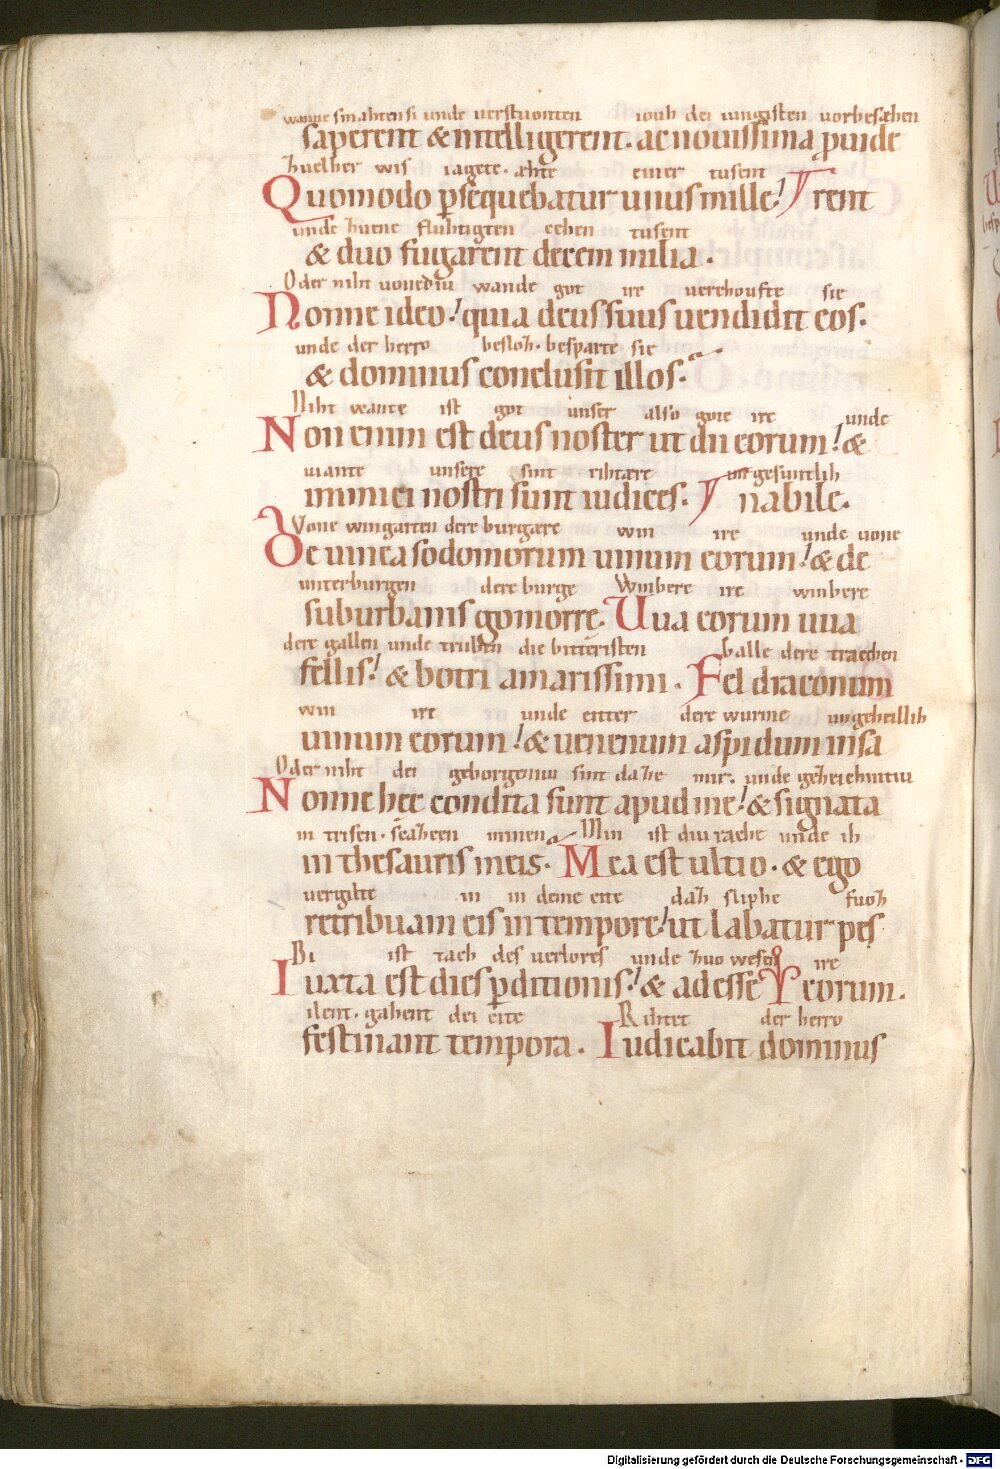 wanne sinahten si unde verstuonten iouh dei iungisten vorbesæhen
saperent & intelligerent. ac novissima pvide
huelher wis iagete. æhte einer tusent
Quomodo psequebatur unus mille! rent
unde huene fluhtigten cehen tusent
& duo fugarent decem milia.
Oder niht vonediu wande got ire verchoufte sie
Nonne ideo! quia deus suus vendidit eos.
unde der herro besloh. besparte sie
& dominus conclusit illos.
Niht wante ist got unser also gote ire unde
Non enim est deus noster ut dn eorum! &
viante unsere sint rihtære ungesuntlih
inimici nostri sunt iudices. nabile.
Vone wingarten dere burgære win ire unde vone
De vinea sodomorum vinum eorum! & de
unterburgen dere burge Winbere ire winbere
suburbanis gomorre. Uva eorum uva
dere gallen unde truben die bitteristen Galle dere traechen
fellis! & botri amarissimi. Fel draconum
win ire unde eitter dere wurme ungeheillih
vinum eorum! & venenum aspidum insa
Oder niht dei geborgeniu sint dahe mir. unde geheichnitiu
Nonne hec condita sunt apud me! & signata
in trisen. scahcen minen Min ist diu rache unde ih
in thesauris meis. Mea est ultio. & ego
vergilte in in deme cite dah sliphe fuoh
retribuam eis in tempore! ut labatur pes
Bi ist tach des verlores unde huo wesen ire
Iuxta est dies pditionis! & adesse eorum.
ilent. gahent dei cite Rihtet der herro
festinant tempora. Iudicabit dominus
Digitalisierung gefördert durch die Deutsche Forschungsgemeinschaft - DFG